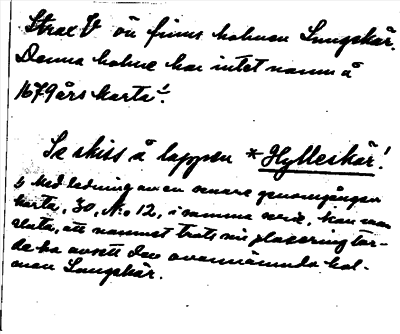 Strax V ön finns holmen Lungskär.
Denna holme har intet namn å
1679 års karta¹.
Se skiss å lappen *Hylleskär!
¹ Med ledning av en senare genomgången
karta, 30, No 12, i samma serie, kan man
sluta, att namnet trots sin placering tor-
de ha avsett den ovannämnda hol-
men Lungskär.